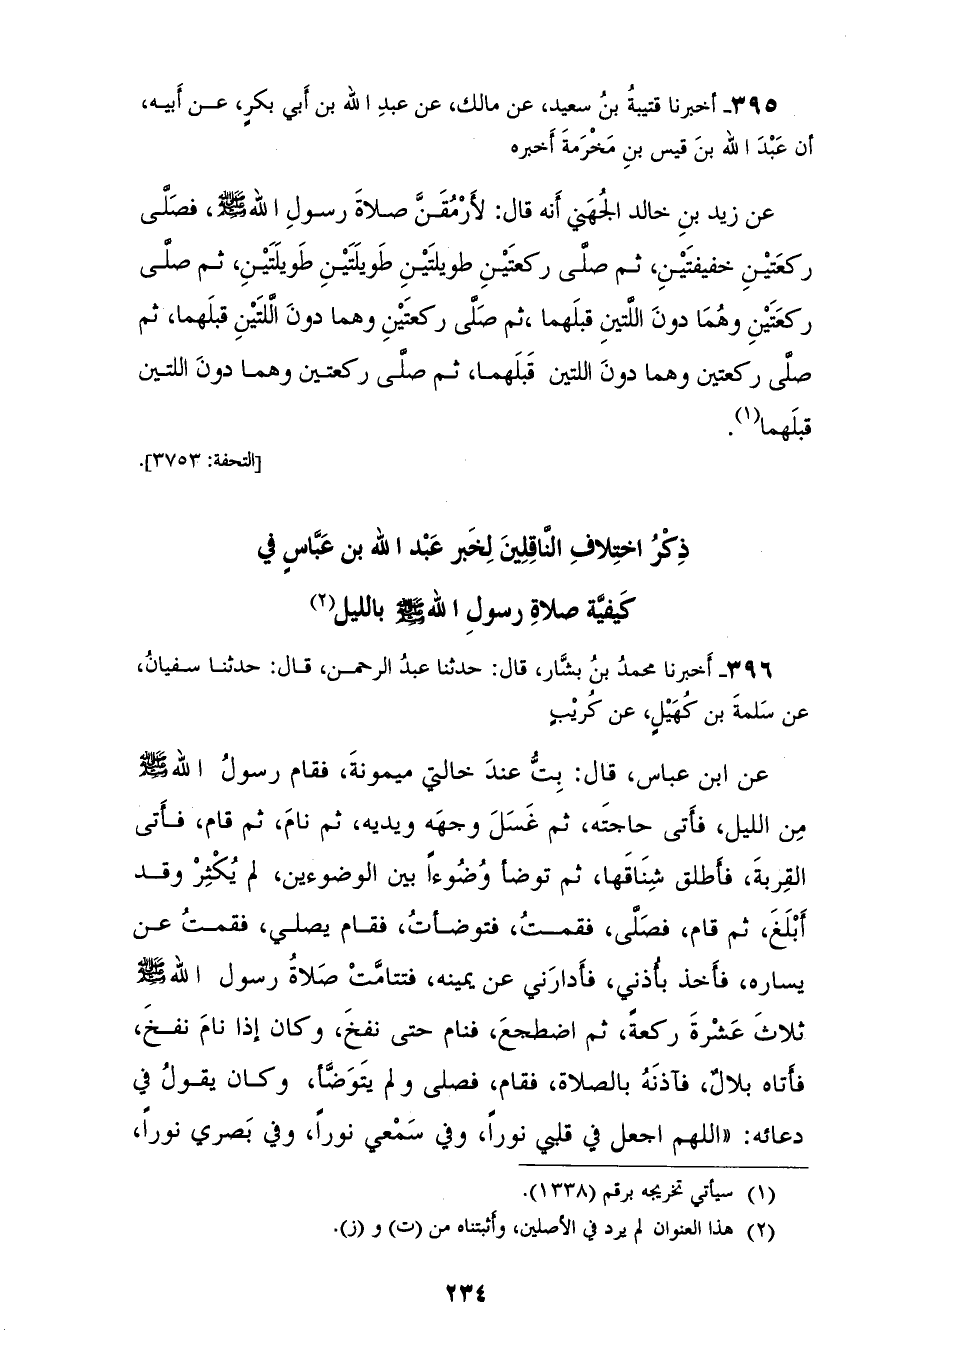 ٣٩٥ـ أخبرنا قتيبةُ بنُ سعيد، عن مالك، عن عبدِ الله بن أَبي بكرٍ، عـن أَبيـه،
أن عَبْدَ الله بنَ قيس بنِ مَخْرَمةَ أَخبره
عن زيد بنِ خالد الجُهَني أَنه قال: لأَرْمُقَـنَّ صـلاةَ رسـولِ اللهﷺ، فصَلَّـى
ركعَتَيْـنِ خفيفتَيْـنِ، ثـم صلَّـى ركعتَيْـنِ طويلتَيْـنِ طَويلَتَيْـنِ طَويلَتَيْـنِ، ثـم صلَّـى
ركعَتَيْنِ وهُمَا دونَ اللَّتينِ قبلَهما ،ثم صَلَّى ركعتَيْنِ وهما دونَ الَّلتَيْنِ قبلَهما، ثم
صلَّى ركعتين وهما دونَ اللتين قَبلَهمـا، ثـم صلَّـى ركعتـين وهمـا دونَ اللتـين
قبلَهما(١).
[التحفة: ٣٧٥٣].
ذِكْرُ اختِلافِ النَّاقِلِينَ لِخَبر عَبْد الله بن عَبَّاسٍ في
كَيفيَّة صلاةِ رسولِ اللهﷺ بالليل(٢)
٣٩٦ـ أَخبرنا محمدُ بنُ بشَّار، قال: حدثنا عبدُ الرحمـن، قـال: حدثنـا سـفيانُ،
عن سَلمةَ بن كُهَيْلٍ، عن كُريْبٍ
عن ابن عباس، قال: بِتُّ عندَ خالتي ميمونةَ، فقام رسولُ اللهﷺ
مِن الليل، فأَتى حاجتَه، ثم غَسَلَ وجهَه ويديه، ثم نامَ، ثم قام، فـأَتى
القِربةَ، فأَطلق شِنَاقَها، ثم توضأ وُضُوءاً بين الوضوءين، لم يُكْثِرْ وقـد
أَبْلَغَ، ثم قام، فصَلَّى، فقمـتُ، فتوضـأتُ، فقـام يصلـي، فقمـتُ عـن
يساره، فأَخذ بأُذني، فأَدارَني عن يمينه، فتتامَّتْ صَلاةُ رسول اللهﷺ
ثلاثَ عَشْرةَ ركعةً، ثم اضطجعَ، فنام حتى نفخَ، وكان إذا نامَ نفـخَ،
فأَتاه بلالٌ، فآذنَهُ بالصلاة، فقام، فصلى ولم يتوَضَّأ، وكـان يقـولُ في
دعائه: «اللهم اجعل في قلبي نوراً، وفي سَمْعي نوراً، وفي بَصري نوراً،
(١) سيأتي تخريجه برقم (١٣٣٨).
(٢) هذا العنوان لم يرد في الأصلين، وأَثبتناه من (ت) و (ز).
٢٣٤